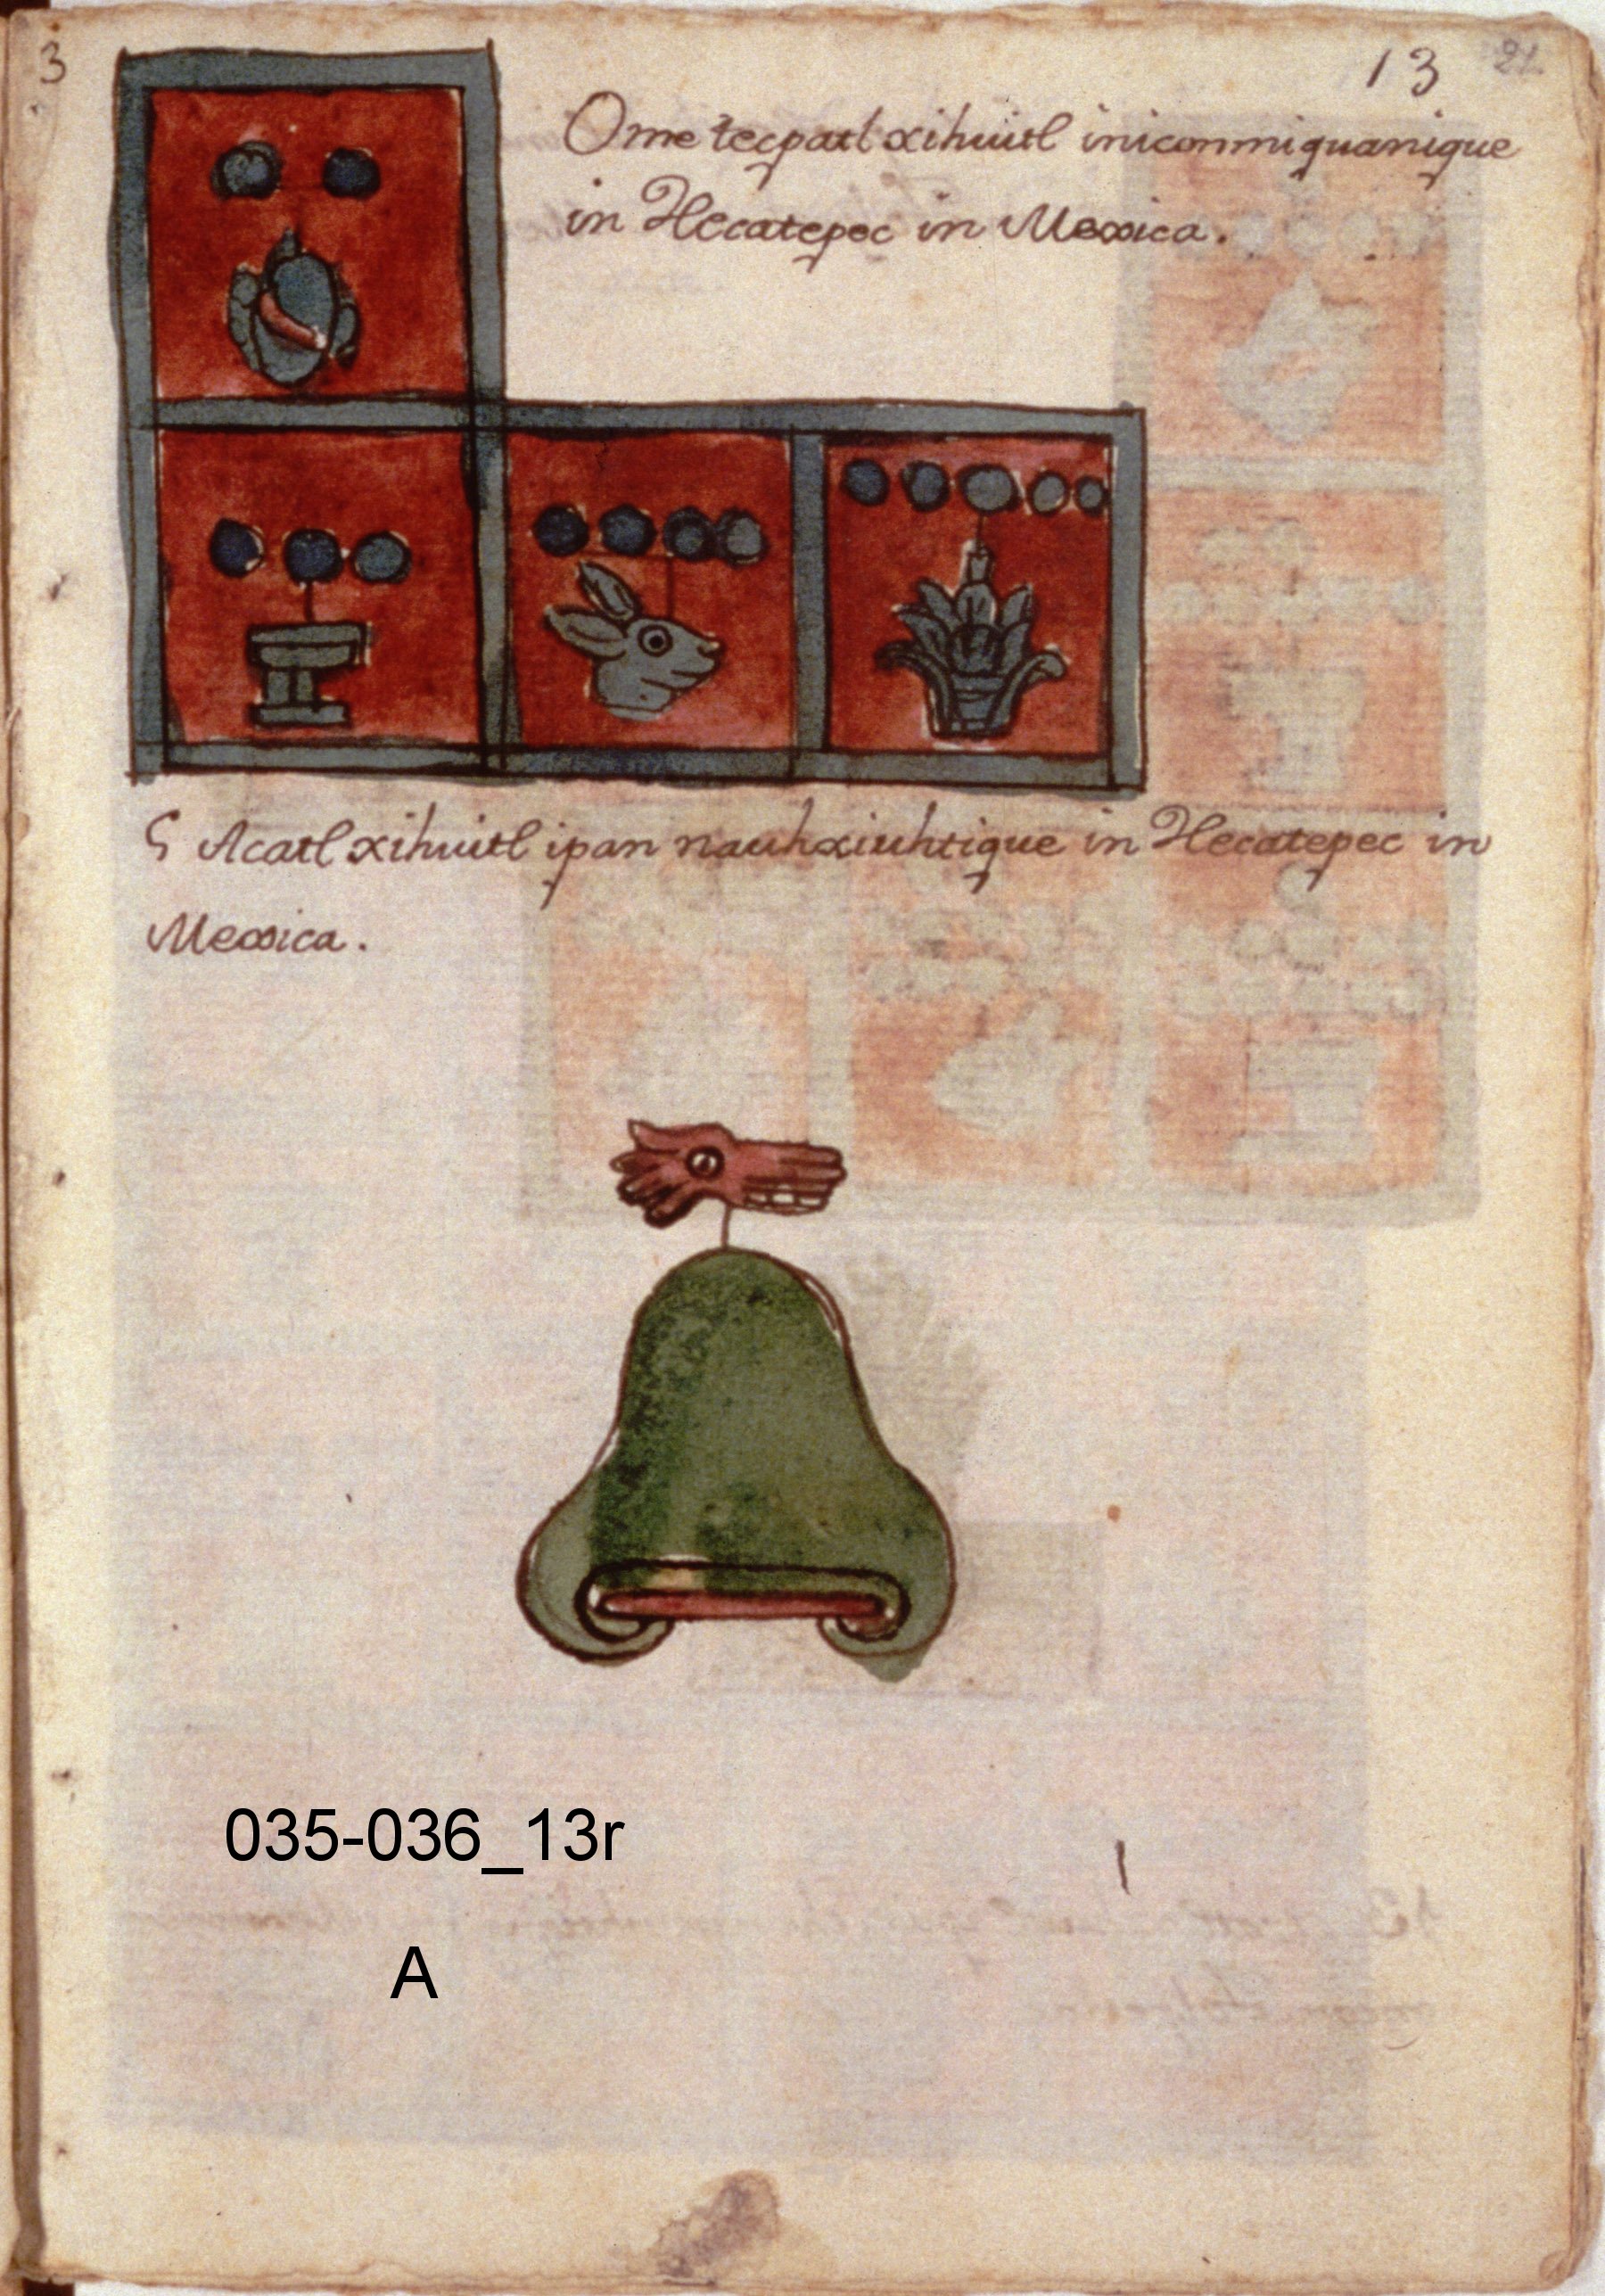 3
13 21
Ome tecpatl xihuitl inicommiquanique
in Hecatepec in Mexica.
5 Acatl xihuitl ipan nauhxiuhtique in Hecatepec in
Mexica.
035-036_13r
A